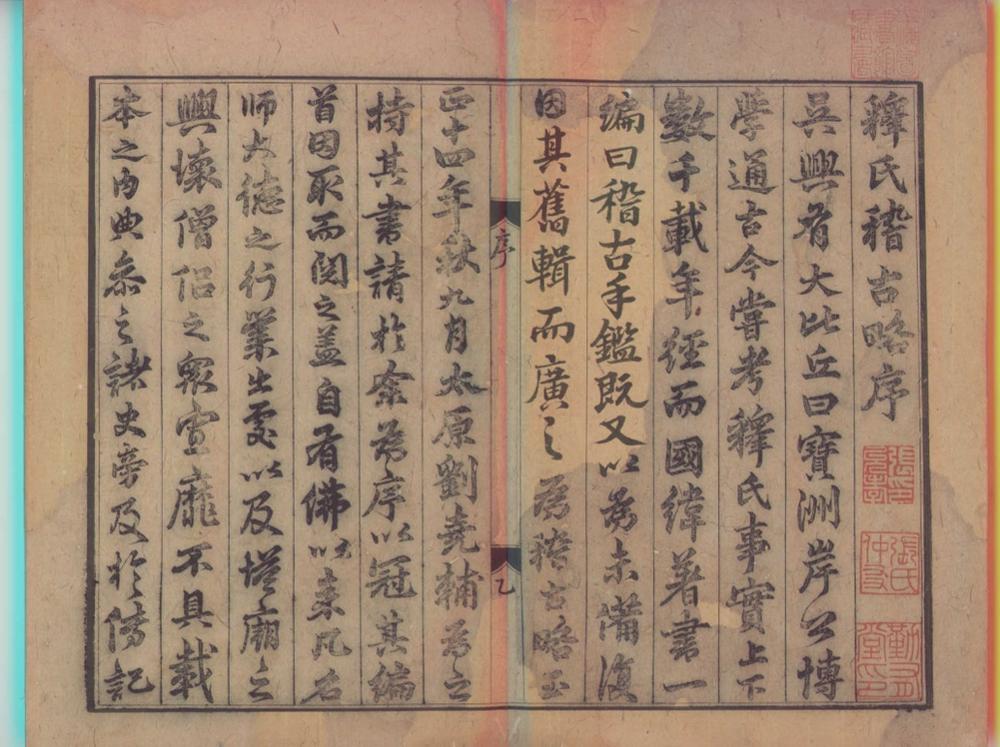 釋氏稽古略序
吳興有大比丘曰寶洲岸公博
學通古今嘗考釋氏事實上下
數千載年經而國緯著書一
編曰稽古手鑑既又以為未備復
因其舊輯而廣之為稽古略至
序
乙
正十四年秋九月太原劉堯輔為之
持其書請於余為序以冠其編
首因取而閱之蓋自有佛以來凡名
師大德之行業出處以及塔廟之
興壞僧侶之眾寡靡不具載
本之內典參之諸史旁及於傳記
張氏